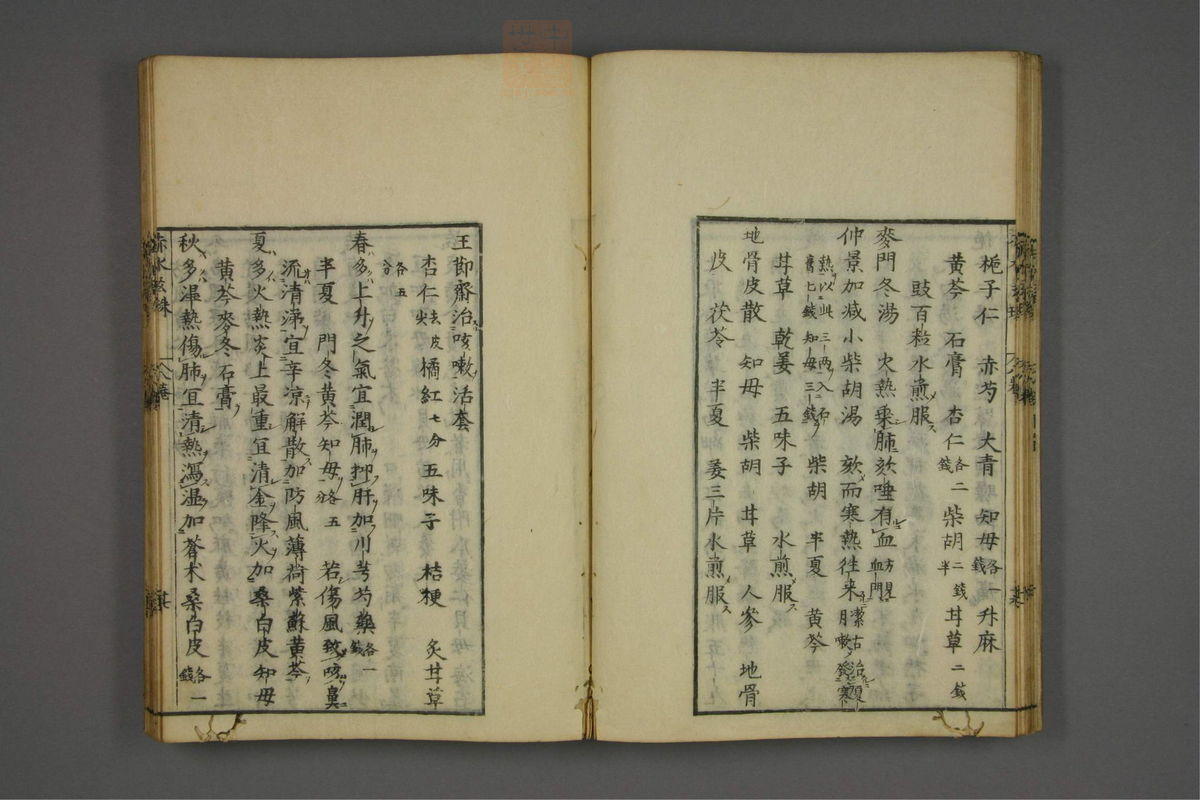 梔子仁　赤芍　大青　知母各一錢　升麻
黄芩　石膏　杏仁各二錢　柴胡二錢半　甘草二錢
豉百粒水煎服ス
麥門冬湯　火熱乘肺欬唾有血
仲景加减小柴胡湯　欬而寒熱往来
熱以此三两入石
膏七錢知母三錢　柴胡　半夏　黄芩
甘草　乾姜　五味子　水煎服ス
地骨皮散　知母　柴胡　甘草　人參　地骨
皮　茯苓　半夏　姜三片水煎服ス
王節齋治咳嗽活套
杏仁去皮尖　橘紅七分　五味子　桔梗　炙甘草
各五分
春多上升之氣宜潤肺抑肝加川芎芍藥各一錢
半夏　門冬黄芩知母各五分　若傷風致咳鼻
流清涕宜辛凉解散加防風薄荷紫蘇黄芩
夏多火熱炎上最重宜清金降火加桑白皮知母
黄芩麥冬石膏
秋多濕熱傷肺宜清熱瀉湿加蒼术桑白皮各一錢
赤水玄珠　八巻